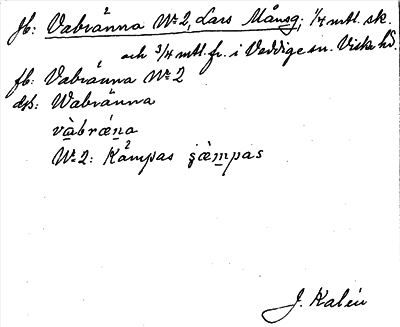 Jb: Vabränna Nº 2, Lars Månsg; 1/4 mtl. sk.
och 3/4 mtl. fr. i Veddige sn. Viske hd.
fb: Vabränna Nº 2
dss: Wabränna
vàbrǽna
Nº 2: Kämpas
J. Kalén